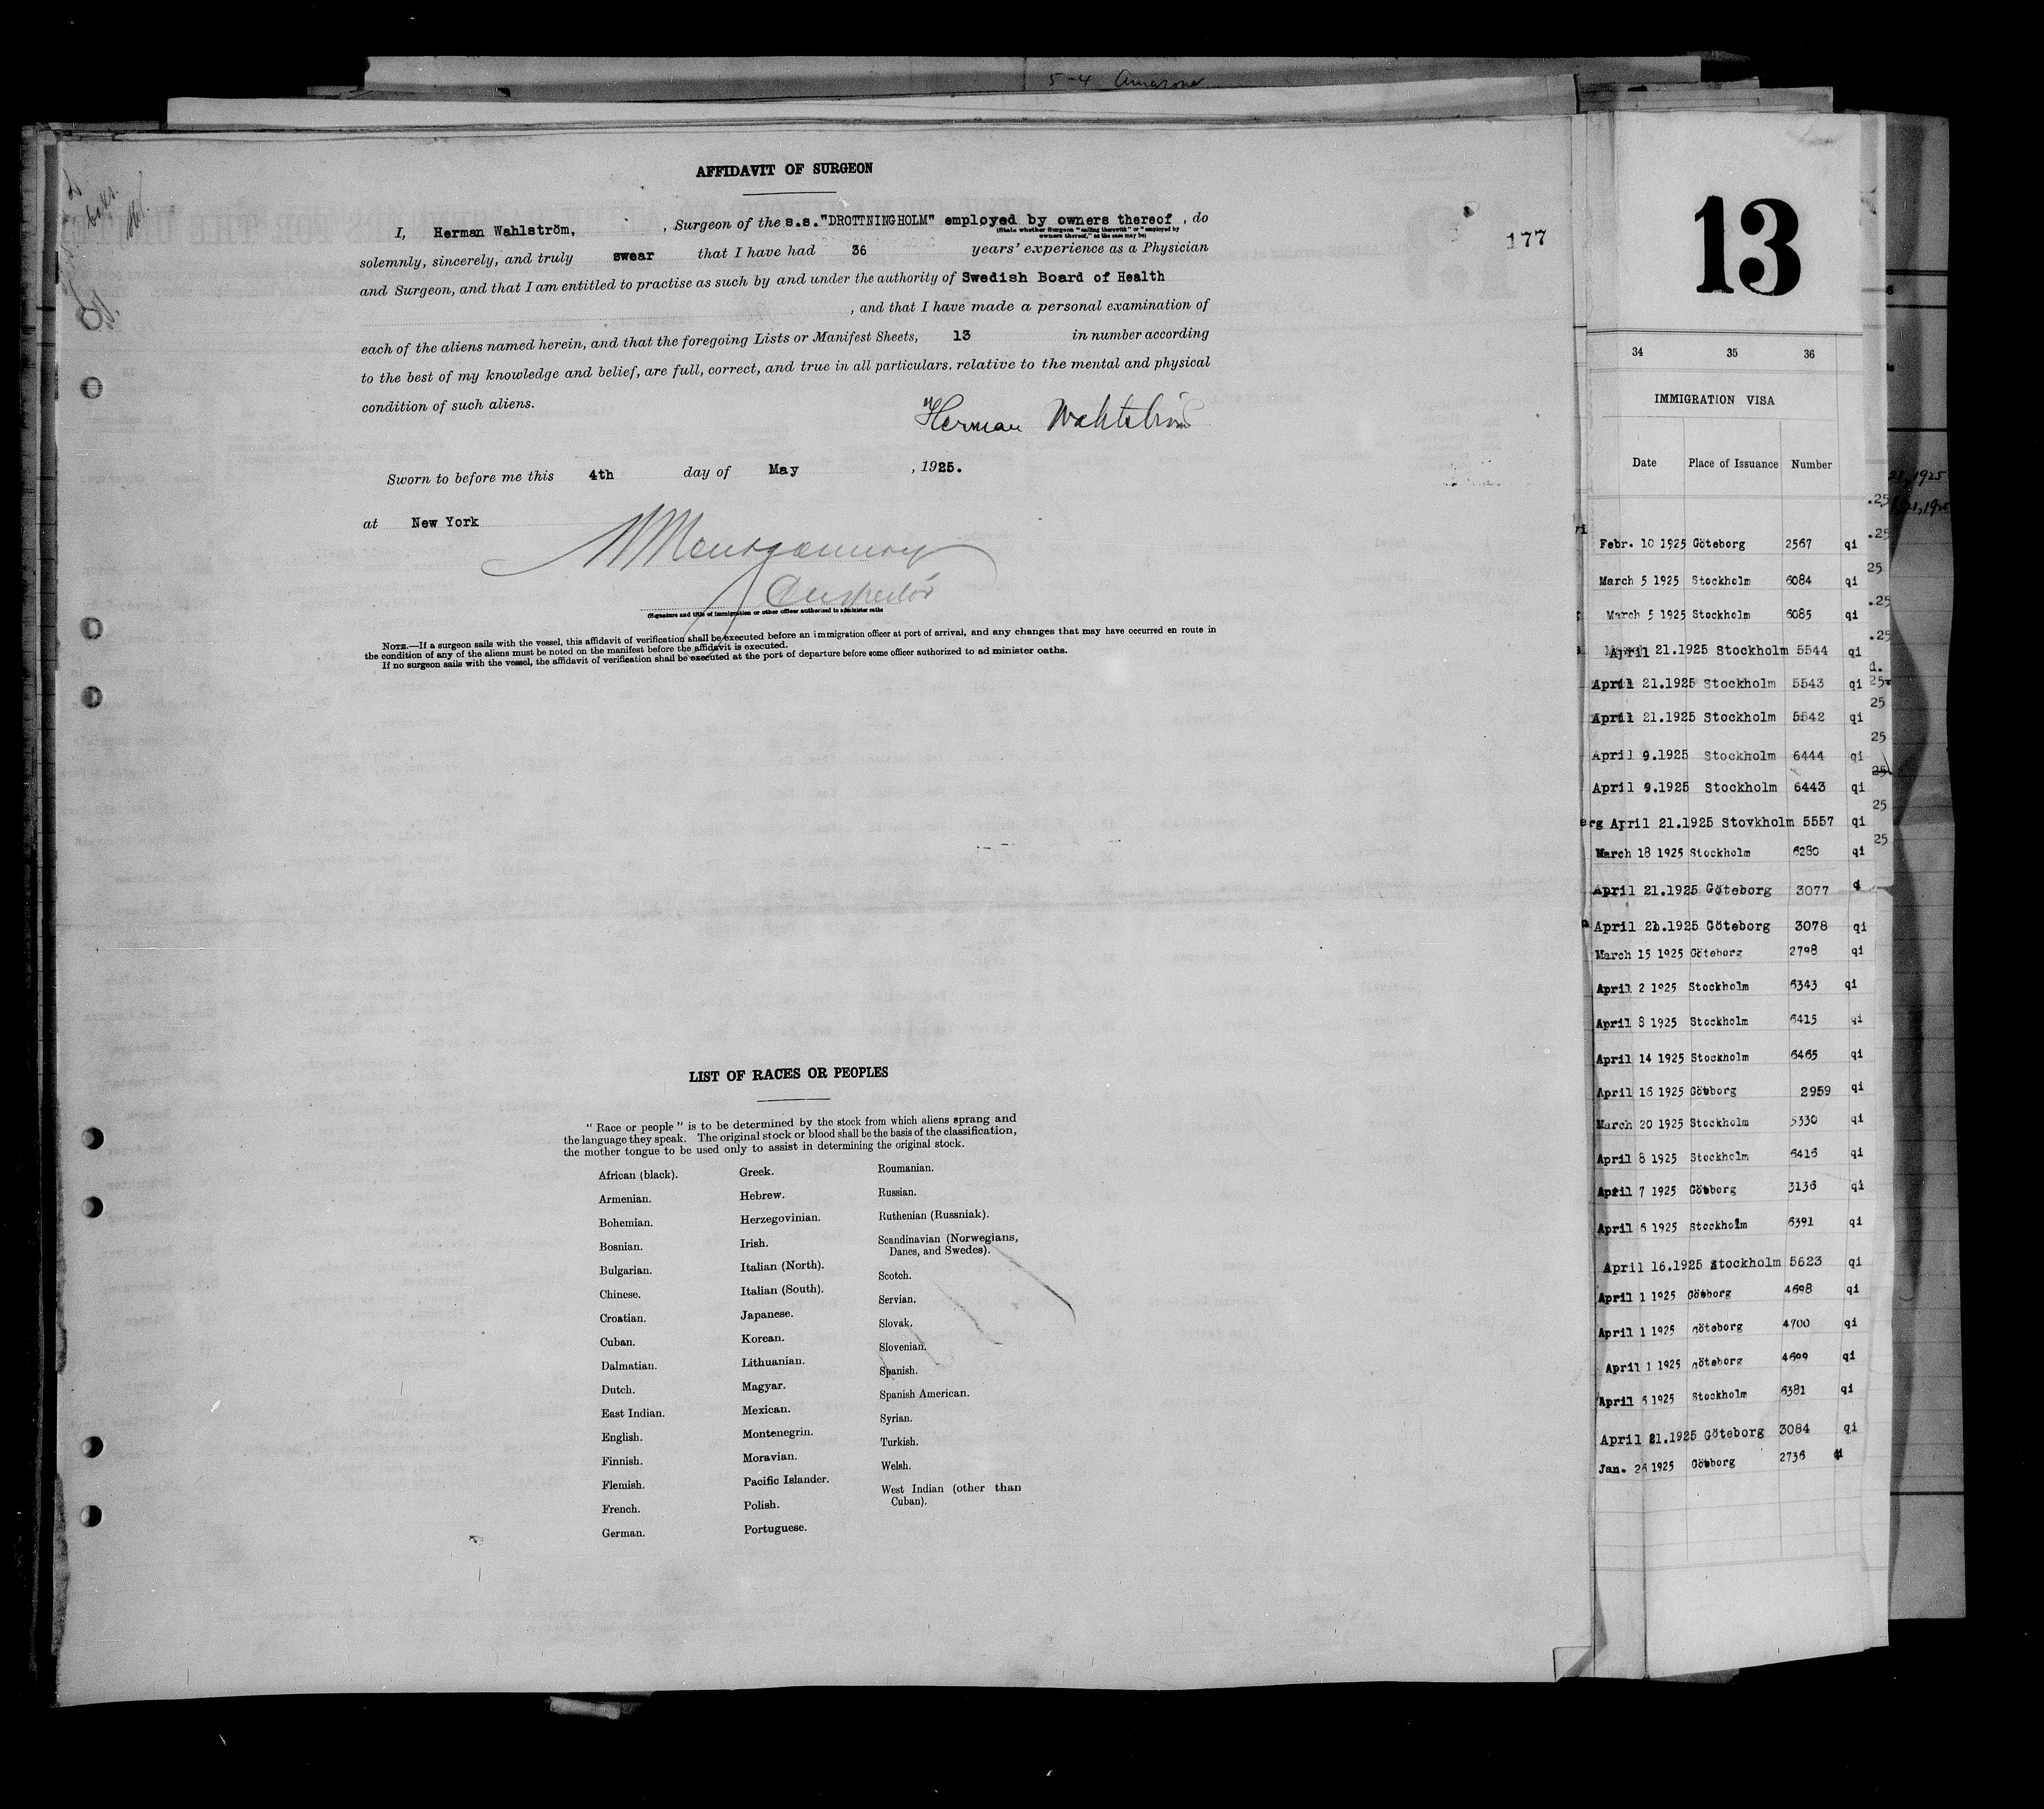 5-4
AFFIDAVIT OF SURGEON
I, Herman Wahlström, , Surgeon of the s.s."DROTTNINGHOLM" employed by owners thereof , do
(State whether Surgeon "sailing therewith" or "employed by
owners thereof," as the case may be)
solemnly, sincerely, and truly swear that I have had 36 years' experience as a Physician
and Surgeon, and that I am entitled to practise as such by and under the authority of Swedish Board of Health
, and that I have made a personal examination of
each of the aliens named herein, and that the foregoing Lists or Manifest Sheets, 13 in number according
to the best of my knowledge and belief, are full, correct, and true in all particulars. relative to the mental and physical
condition of such aliens.
Herman Wahlström
Sworn to before me this 4th day of May , 1925.
at New York
Montgomery
Inspector
(Signature and title of immigration or other officer authorized to administer oaths
NOTE.—If a surgeon sails with the vessel, this affidavit of verification shall be executed before an immigration officer at port of arrival, and any changes that may have occurred en route in
the condition of any of the aliens must be noted on the manifest before the affidavit is executed.
If no surgeon sails with the vessel, the affidavit of verification shall be executed at the port of departure before some officer authorized to ad minister oaths.
177
LIST OF RACES OR PEOPLES
" Race or people " is to be determined by the stock from which aliens sprang and
the language they speak. The original stock or blood shall be the basis of the classification,
the mother tongue to be used only to assist in determining the original stock.
African (black).
Armenian.
Bohemian.
Bosnian.
Bulgarian.
Chinese.
Croatian.
Cuban.
Dalmatian.
Dutch.
East Indian.
English.
Finnish.
Flemish.
French.
German.
Greek.
Hebrew.
Herzegovinian.
Irish.
Italian (North).
Italian (South).
Japanese.
Korean.
Lithuanian.
Magyar.
Mexican.
Montenegrin.
Moravian.
Pacific Islander.
Polish.
Portuguese.
Roumanian.
Russian.
Ruthenian (Russniak).
Scandinavian (Norwegians,
Danes, and Swedes).
Scotch.
Servian.
Slovak.
Slovenian.
Spanish.
Spanish American.
Syrian.
Turkish.
Welsh.
West Indian (other than
Cuban).
13
34 35 36
IMMIGRATION VISA
Date Place of Issuance Number
Febr. 10 1925 Göteborg 2567 qi
March 5 1925 Stockholm 6084 qi
March 5 1925 Stockholm 6085 qi
April 21.1925 Stockholm 5544 qi
April 21.1925 Stockholm 5543 qi
April 21.1925 Stockholm 5542 qi
April 9.1925 Stockholm 6444 qi
April 9.1925 Stockholm 6443 qi
erg April 21.1925 Stovkholm 5557 qi
March 18 1925 Stockholm 6280 qi
April 21.1925 Göteborg 3077 q
April 21.1925 Göteborg 3078 qi
March 15 1925 Göteborg 2798 qi
April 2 1925 Stockholm 6343 qi
April 8 1925 Stockholm 6415 qi
April 14 1925 Stockholm 6465 qi
April 16 1925 Göteborg 2959 qi
March 20 1925 Stockholm 5330 qi
April 8 1925 Stockholm 6416 qi
April 7 1925 Göteborg 3136 qi
April 6 1925 Stockholm 6391 qi
April 16.1925 Stockholm 5623 qi
April 1 1925 Göteborg 4698 qi
April 1 1925 Göteborg 4700 qi
April 1 1925 Göteborg 4699 qi
April 6 1925 Stockholm 6381 qi
April 21.1925 Göteborg 3084 qi
Jan. 26 1925 Göteborg 2736 qi
21,1925
21,1925